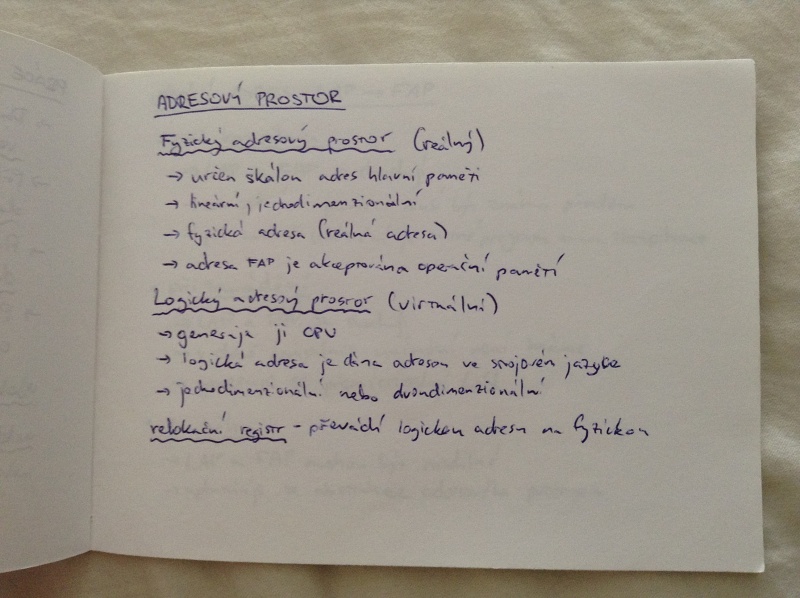 ADRESOVÝ PROSTOR
Fyzický adresový prostor (reálný)
→ určen škálou adres hlavní paměti
→ lineární, jednodimenzionální
→ fyzická adresa (reálná adresa)
→ adresa FAP je akceptována operační pamětí
Logický adresový prostor (virtuální)
→ generuje ji CPU
→ logická adresa je dána adresou ve strojovém jazyce
→ jednodimenzionální nebo dvoudimenzionální
relokační registr - převádí logickou adresu na fyzickou